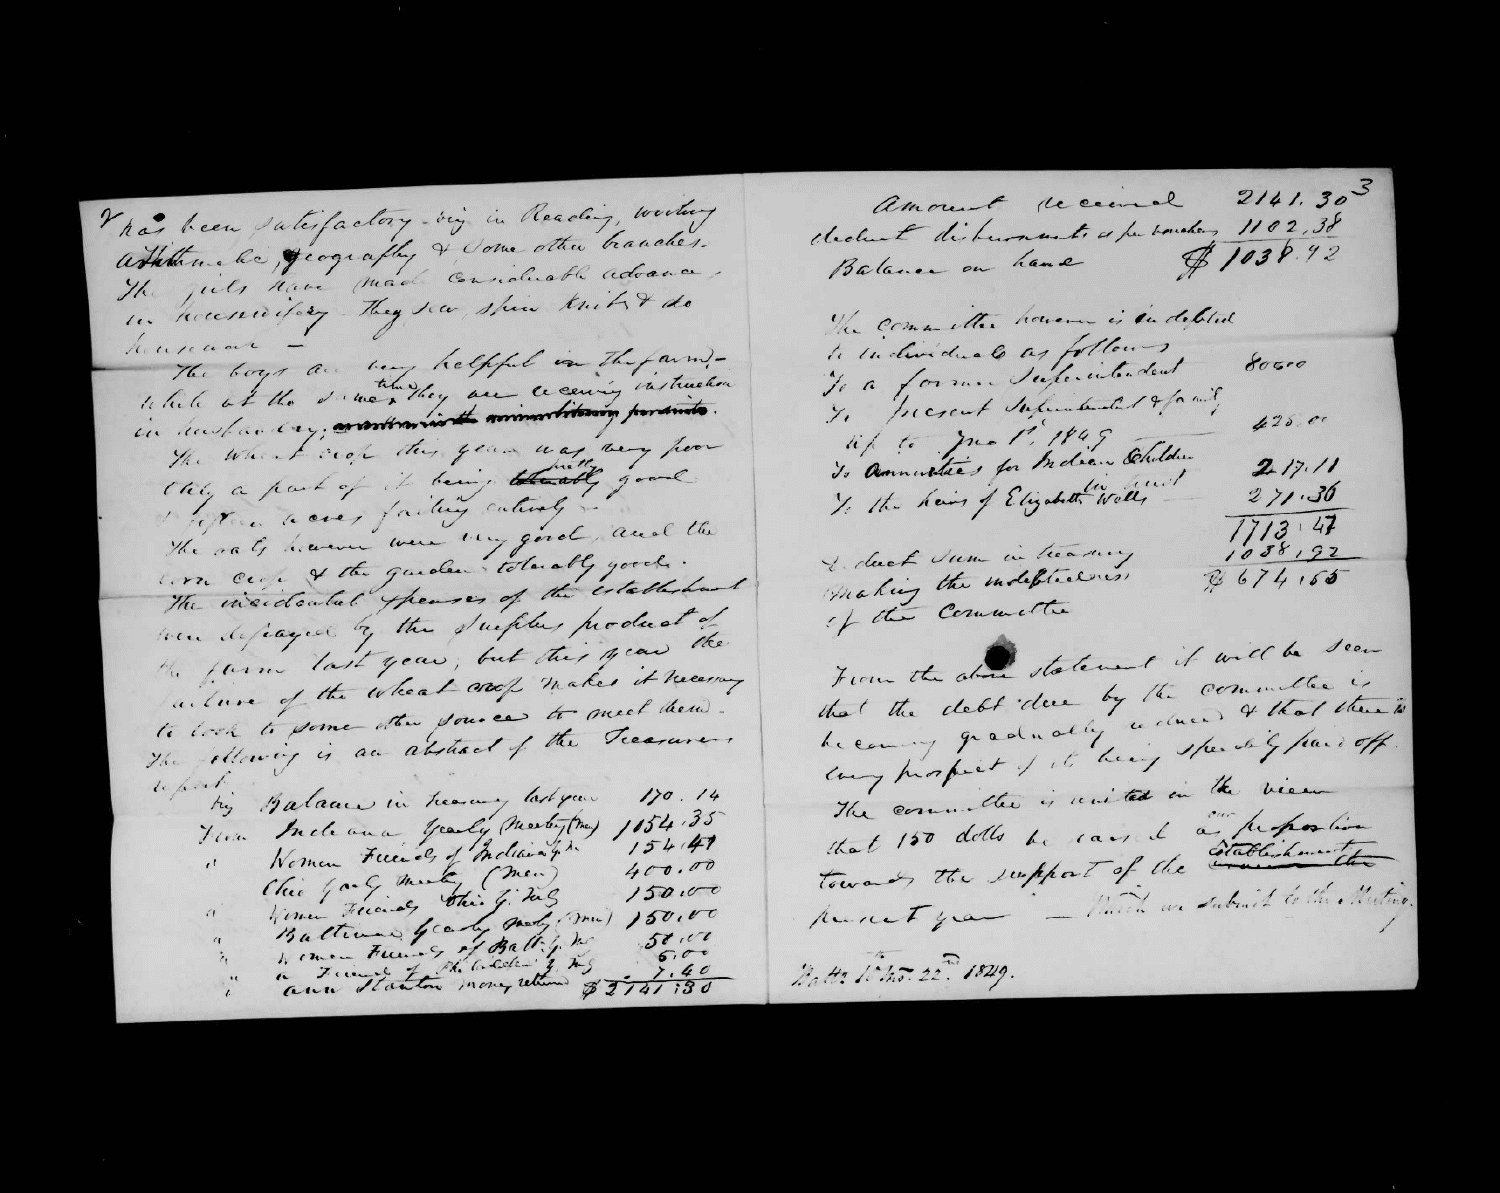 2
has been satisfactory - viz in Reading, writing
Arithmetic, geography & some other branches.
The girls have made considerable advance,
in housewifery They sew, spin Knit & do
housework -
The boys are very helpful in the farm, -
while at the same time they are receiving instruction
in husbandry;
The wheat crop this year was very poor
Only a part of it being tolerably pretty good
& fifteen acres failing entirely -
The oats however were very good, and the
corn crop & the garden tolerably good.
The incidental expenses of the establishment
were defrayed by the surplus product of
the farm last year, but this year the
failure of the wheat crop makes it necessary
to look to some other source to meet them -
The following is an abstract of the Treasurers
report
viz Balance in treasury last year 170.14
From Indiana Yearly Meeting (Men) 1054.35
" Women Friends of Indiana Y. M 154.41
Ohio Yearly Meeting (Men) 400.00
" Women Friends Ohio Y. Mtg 150.00
" Baltimore Yearly Meetg (Men) 150.00
" Women Friends of Balt. Y. Mg 50.00
" a Friend of Philadelª Y. Mtg 5.00
" Ann Stanton money returned 7.40
$ 2141.30
3
Amount received 2141.30
deduct disbursments as per vouchers 1102.38
Balance on hand $ 1038.92
The committee however is indebted
to individuals as follows
To a former Superintendent 800.00
To present Superintendent & family
up to 1st, 1849 425.00
To Annuities for Indian Children 217.11
To the heirs of Elizabeth Wells 271.36
1713.47
deduct sum in treasury 1038.92
Making the indebtedness $ 674.55
of the Committee
From the above statement it will be seen
that the debt due by the committee is
becoming gradually reduced & that there is
every prospect of its being speedily paid off
The committee is united in the view
that 150 dolls be raised as our proportion
towards the support of the establishment the
present year - Which we submit to the Meeting.
Balto 10th Mo. 22nd 1849.